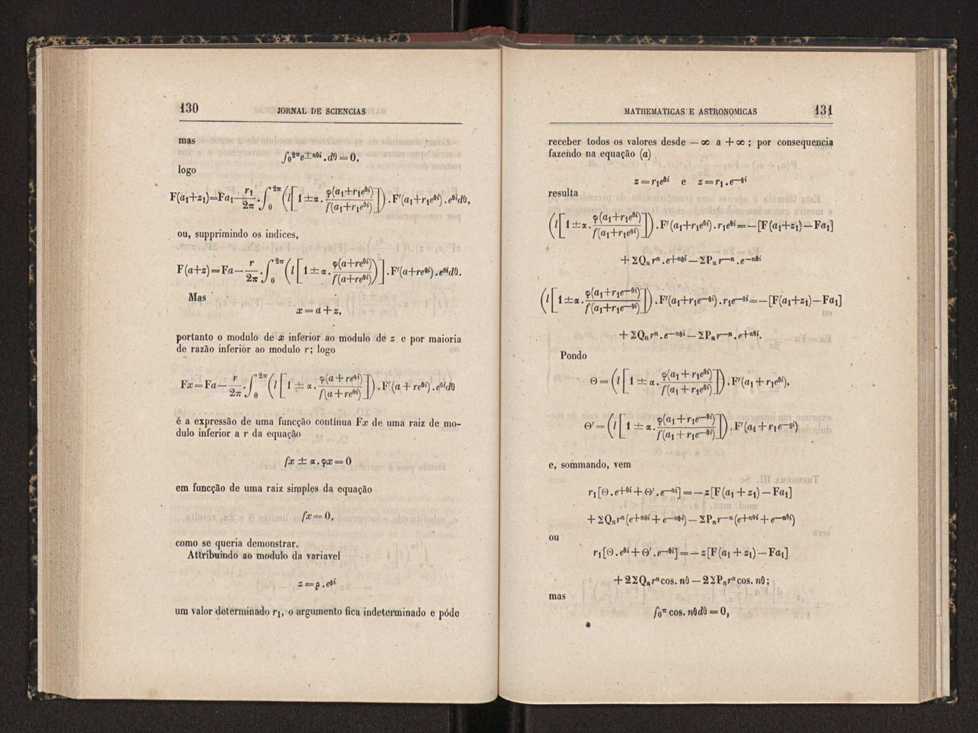 130 JORNAL DE SCIENCIAS
mas
∫₀²ᵠe^{±nθi}.dθ=0,
logo
F(a₁+z₁)=Fa₁−r₁/2π.∫₀^{2π}(l[1±α.φ(a₁+r₁e^{θi})/f(a₁+r₁e^{θi})]).F′(a₁+r₁e^{θi}).e^{θi}dθ,
ou, supprimindo os indices,
F(a+z)=Fa−r/2π.∫₀^{2π}(l[1±α.φ(a+re^{θi})/f(a+re^{θi})]).F′(a+re^{θi}).e^{θi}dθ.
Mas
x=a+z,
portanto o modulo de x inferior ao modulo de z e por maioria
de razão inferior ao modulo r; logo
Fx=Fa−r/2π.∫₀^{2π}(l[1±α.φ(a+re^{θi})/f(a+re^{θi})]).F′(a+re^{θi}).e^{θi}dθ
é a expressão de uma funcção continua Fx de uma raiz de mo-
dulo inferior a r da equação
fx±α.φx=0
em funcção de uma raiz simples da equação
fx=0,
como se queria demonstrar.
Attribuindo ao modulo da variavel
z=ρ.e^{θi}
um valor determinado r₁, o argumento fica indeterminado e póde
MATHEMATICAS E ASTRONOMICAS 131
receber todos os valores desde −∞ a +∞; por consequencia
fazendo na equação (a)
z=r₁e^{θi} e z=r₁.e^{−θi}
resulta
(l[1±α.φ(a₁+r₁e^{θi})/f(a₁+r₁e^{θi})]).F′(a₁+r₁e^{θi}).r₁e^{θi}=−[F(a₁+z₁)−Fa₁]
+ΣQₙrⁿ.e^{+nθi}−ΣPₙr^{−n}.e^{−nθi}
(l[1±α.φ(a₁+r₁e^{−θi})/f(a₁+r₁e^{−θi})]).F′(a₁+r₁e^{−θi}).r₁e^{−θi}=−[F(a₁+z₁)−Fa₁]
+ΣQₙrⁿ.e^{−nθi}−ΣPₙr^{−n}.e^{+nθi}.
Pondo
Θ=(l[1±α.φ(a₁+r₁e^{θi})/f(a₁+r₁e^{θi})]).F′(a₁+r₁e^{θi}),
Θ′=(l[1±α.φ(a₁+r₁e^{−θi})/f(a₁+r₁e^{−θi})]).F′(a₁+r₁e^{−θi})
e, sommando, vem
r₁[Θ.e^{+θi}+Θ′.e^{−θi}]=−z[F(a₁+z₁)−Fa₁]
+ΣQₙrⁿ(e^{+nθi}+e^{−nθi})−ΣPₙr^{−n}(e^{+nθi}+e^{−nθi})
ou
r₁[Θ.e^{θi}+Θ′.e^{−θi}]=−z[F(a₁+z₁)−Fa₁]
+2ΣQₙrⁿcos. nθ−2ΣPₙrⁿcos. nθ;
mas
∫₀^π cos. nθdθ=0,